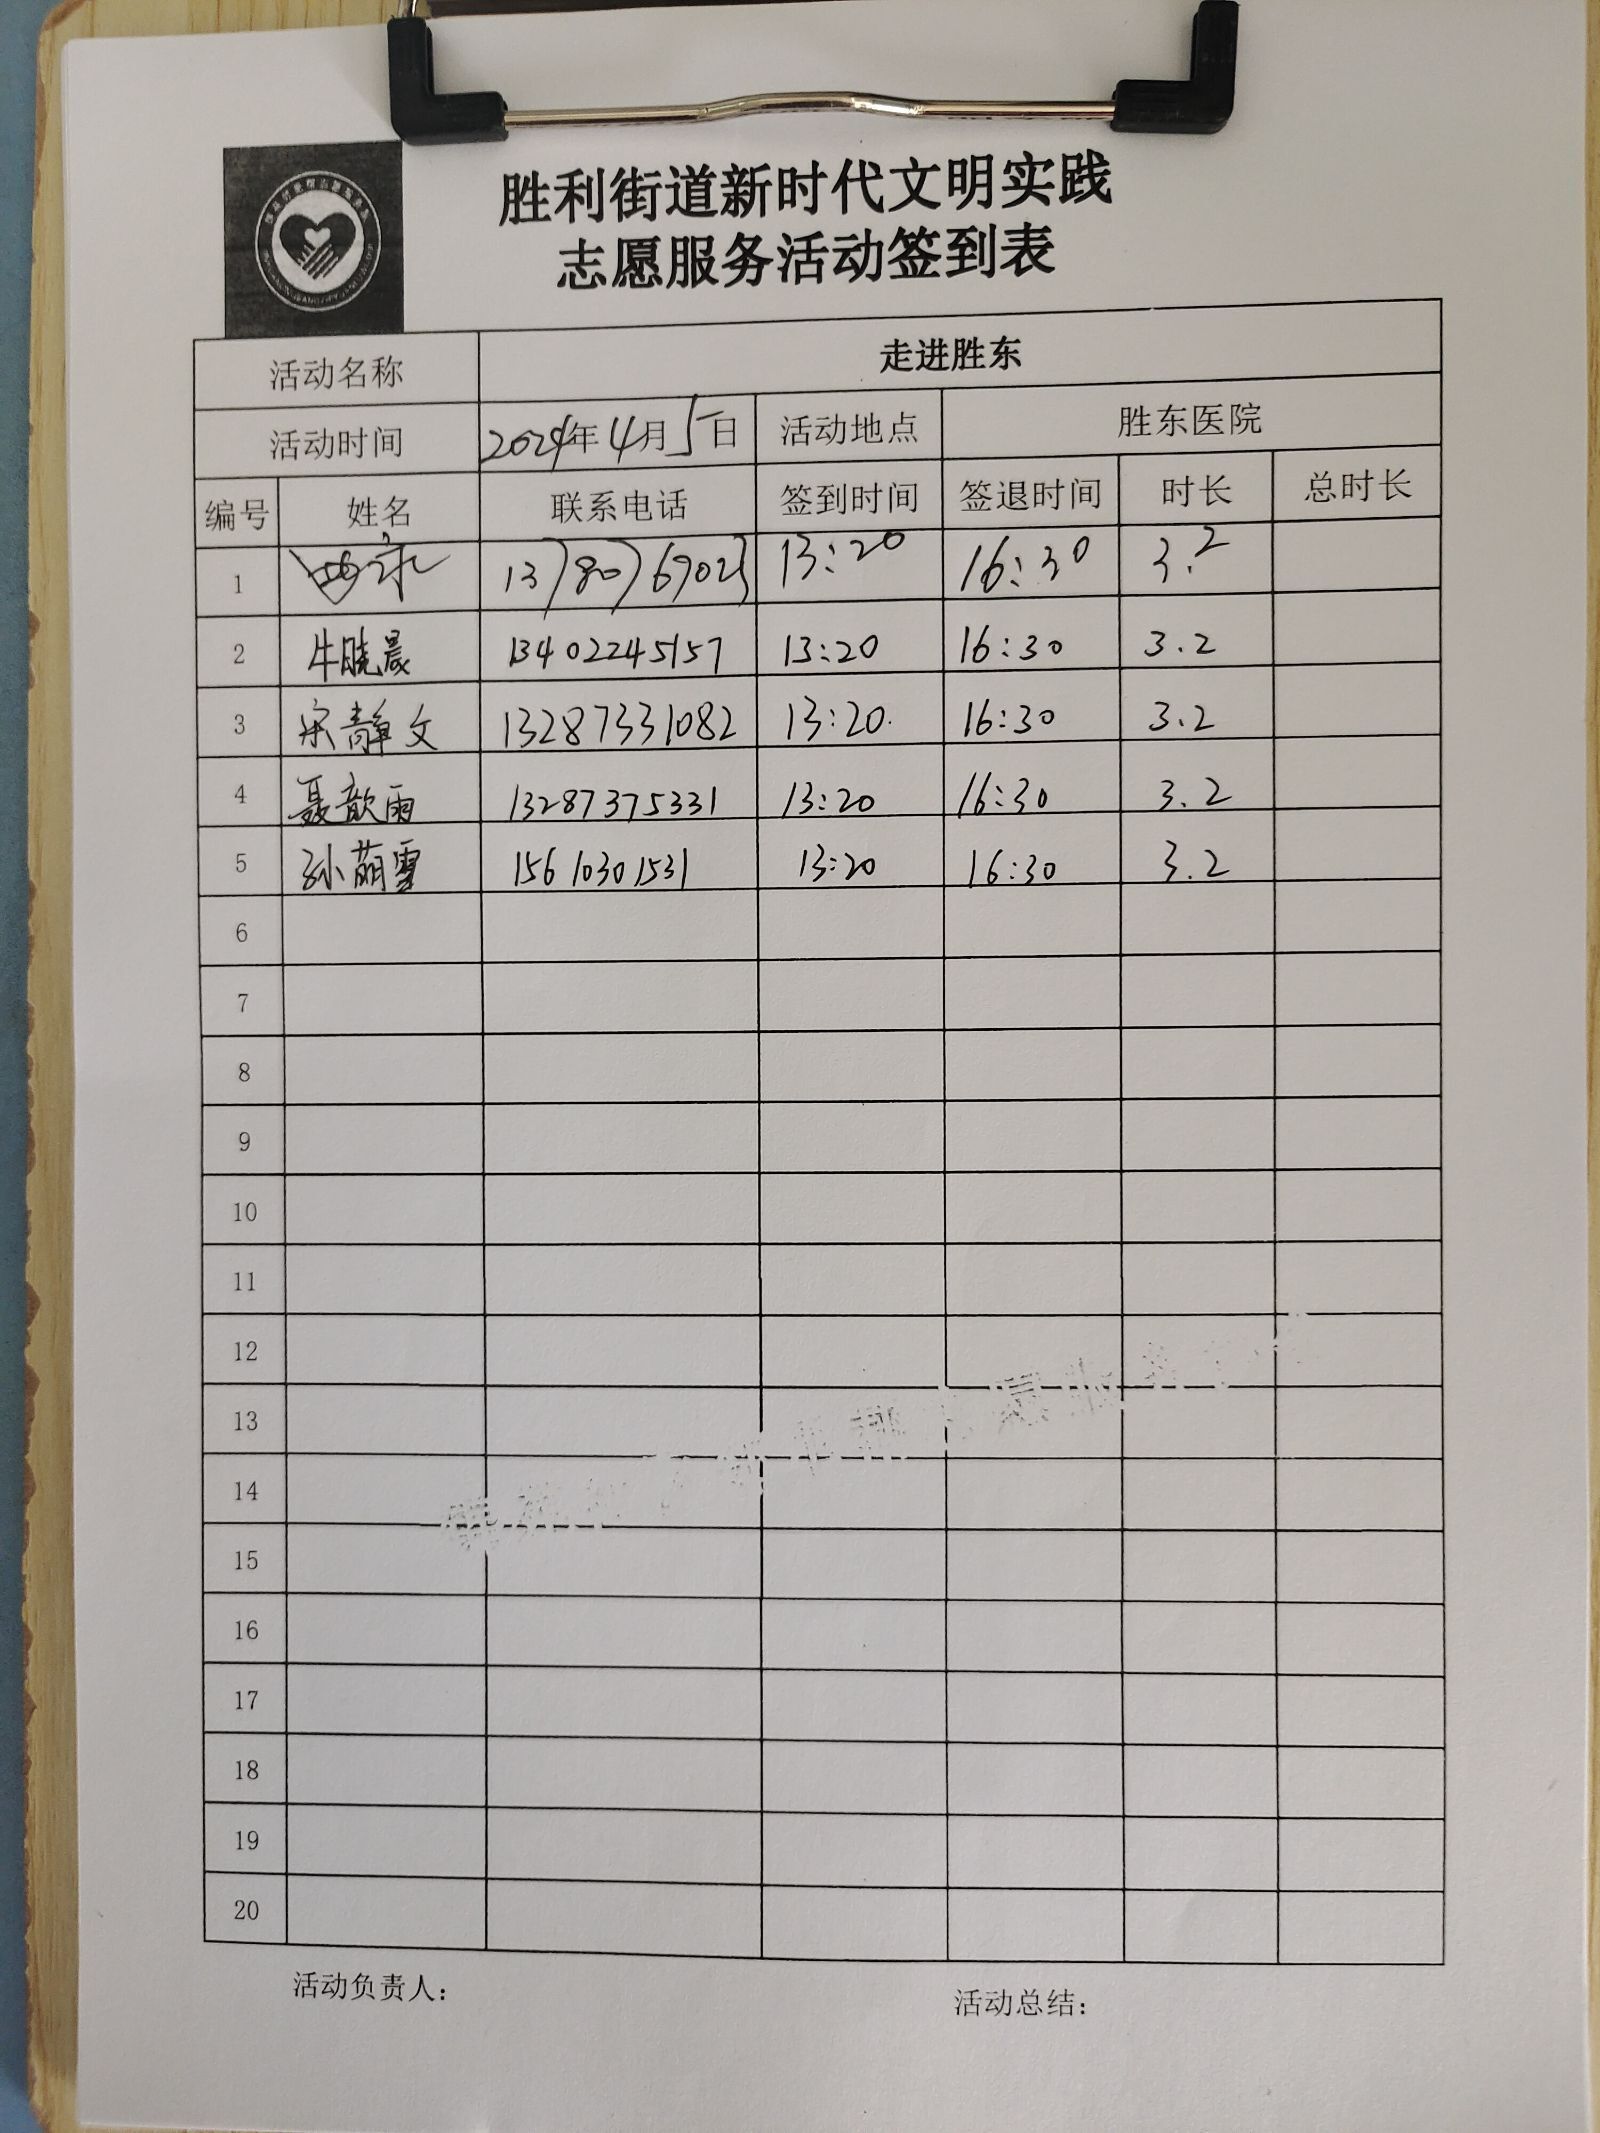 胜利街道新时代文明实践
志愿服务活动签到表
活动名称 走进胜东
活动时间 2024年4月5日 活动地点 胜东医院
编号 姓名 联系电话 签到时间 签退时间 时长 总时长
1 13780769023 13:20 16:30 3.2
2 牛晓晨 13402245157 13:20 16:30 3.2
3 宋静文 13287331082 13:20 16:30 3.2
4 聂歆雨 13287375331 13:20 16:30 3.2
5 孙萌雪 15610301531 13:20 16:30 3.2
6
7
8
9
10
11
12
13
14
15
16
17
18
19
20
活动负责人： 活动总结：